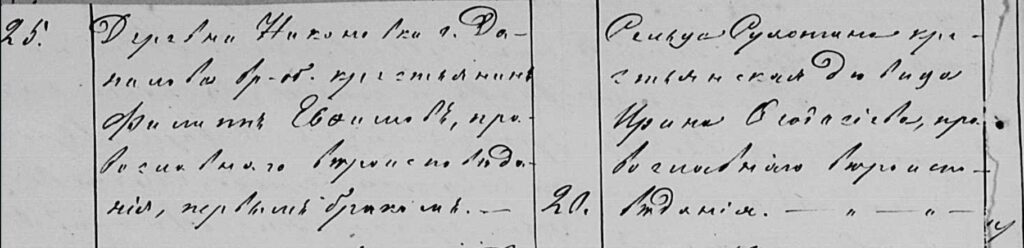 25.
Деревни Никоновки г. Да-
нилова вр-об. крестьянинъ
Филиппъ Евѳимовъ, пра-
вославнаго вѣроисповѣда-
нія, первымъ бракомъ. —
20.
Сельца кре-
стьянская дѣвица
Ирина пра-
вославнаго вѣроиспо-
вѣданія. — „ — „ —